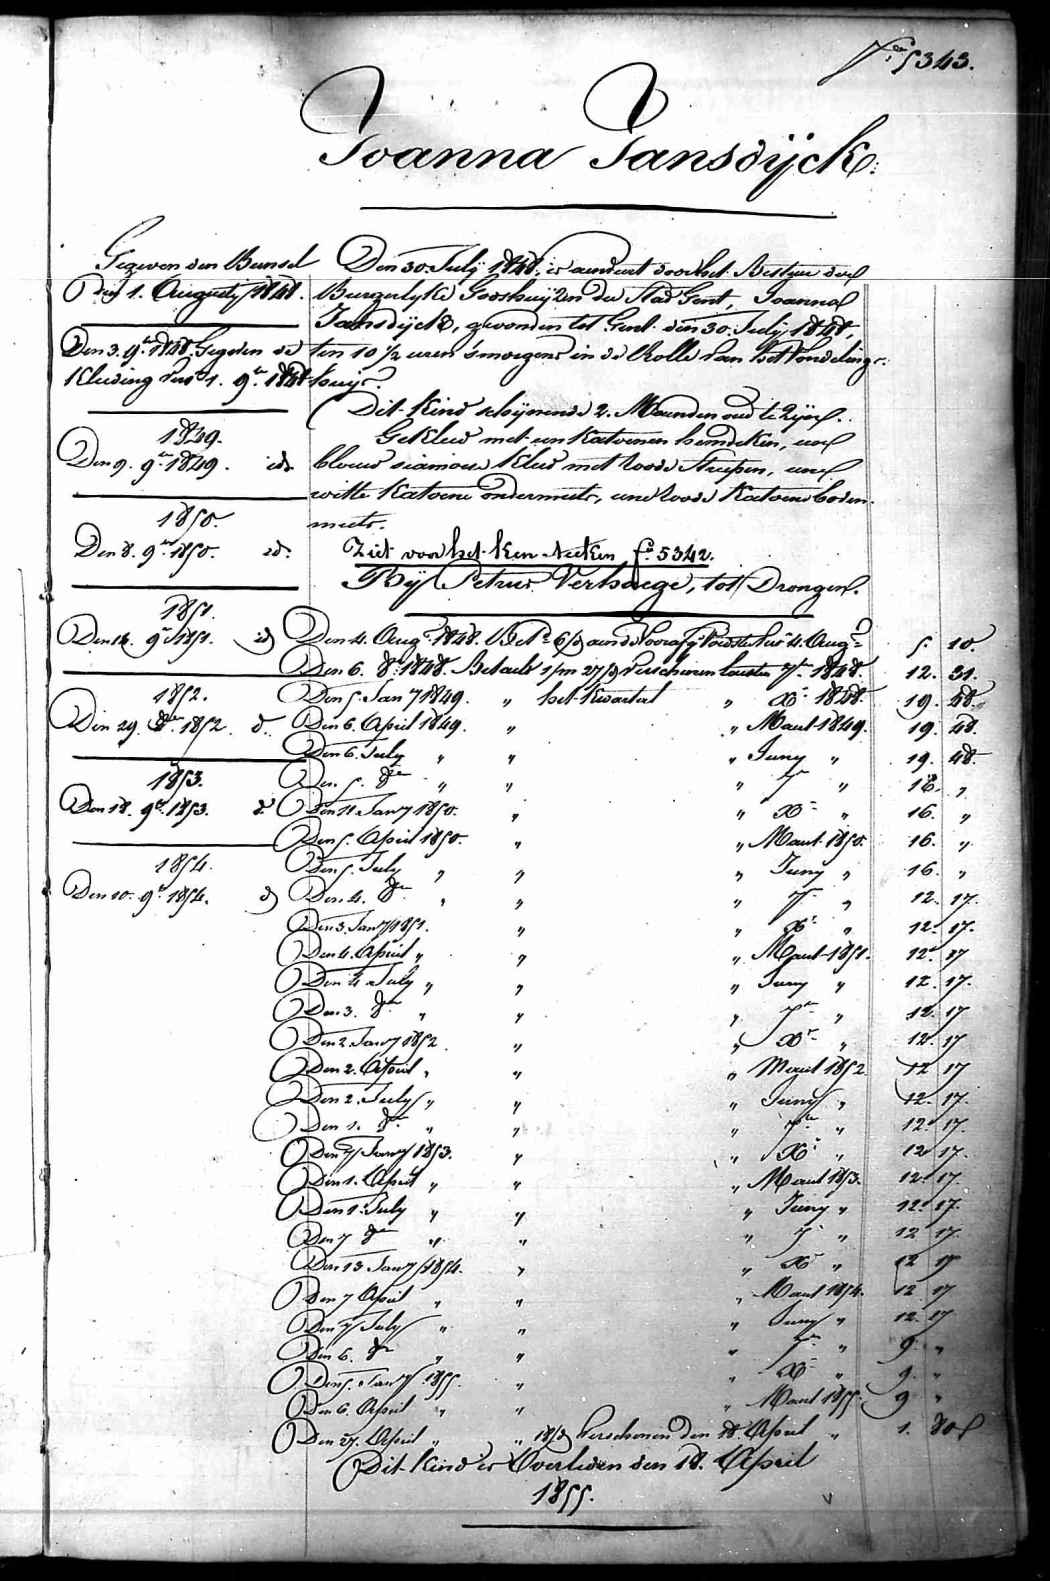 Fo. 5343.
Joanna Jansdÿck.
Gegeven den Bunsel
Den 1. Augusty 1848.
Den 3. 9b. 1848. Gegeven de
Kleeding 1. 9b. 1848
1849.
Den 9. 9b. 1849. id.
1850.
Den 8. 9b. 1850. id.
1851.
9b. 1851. id
1852.
Den 29. 1852. d.
1853.
Den 18. 9b. 1853. d.
1854.
Den 10. 9b. 1854. d
Den 30 July 1848. is aenveert door het Bestuer der
Burgerlyke Godshuyzen der Stad Gent, Joanna
Jansdÿck, gevonden tot Gent den 30. July 1848,
ten 10 1/2 uren 's morgens in de Rolle van het Vondeling-
huys.
Dit Kind schynende 2. Maenden oud te zyn.
Gekleed met een Katoenen hemdeken, een
blouw siamoise kleed met roode Streepen, een
witte Katoene ondermuts, een roode Katoene boven-
muts.
Ziet voor het Ken-teeken fo. 5342.
Bÿ Petrus Verhaege, tot Drongen.
Den 4. Aug. 1848. 4. Aug. 5. 10.
Den 6. 8b. 1848. Betaelt 1/m 27/d verschenen 7b. 1848. 12. 31.
Den 5. Jany 1849. " het Kwartael " Xb. 1848. 19. 48.
Den 6. April 1849. " " Maart 1849. 19. 48.
Den 6. July " " " Juny " 19. 48.
Den 5. 8b. " " " 7b. " 16. "
Den 11. Jany 1850. " " Xb. " 16. "
Den 5. April 1850. " " Maart 1850. 16. "
Den 5. July " " " Juny " 16. "
Den 4. 8b. " " " 7b. " 12. 17.
Den 3. Jany 1851. " " Xb. " 12. 17.
Den 4. April " " " Maart 1851. 12. 17
Den 4 July " " " Juny " 12. 17.
Den 3. 8b. " " " 7b. " 12. 17
Den 2. Jany 1852 " " Xb. " 12. 17
Den 2. April " " " Maart 1852. 12 17
Den 2. July " " " Juny " 12. 17.
Den 1. 8b. " " " 7b. " 12. 17.
Den 7 Jany 1853. " " Xb. " 12 17.
Den 1. April " " " Maart 1853. 12. 17.
Den 1. July " " " Juny " 12. 17.
Den 7 8b. " " " 7b. " 12 17.
Den 13. Jany 1854. " " Xb. " 12 17
Den 7 April " " " Maart 1854. 12 17
Den 7 July " " " Juny " 12. 17
Den 6. 8b. " " " 7b. " 9. "
Den 5. Jany 1855. " " Xb. " 9. "
Den 6. April " " " Maart 1855. 9 "
Den 27. April " " 18/d verschenen den 18. April " 1. 80
Dit Kind is Overleden den 18. April
1855.